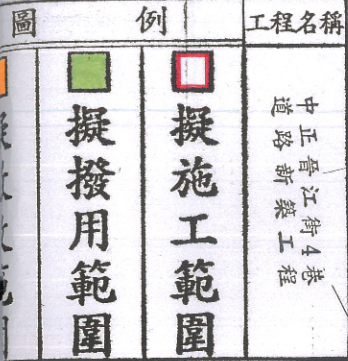 工程名稱
中正晉江街4巷
道路新築工程
圖例
擬施工範圍
擬撥用範圍